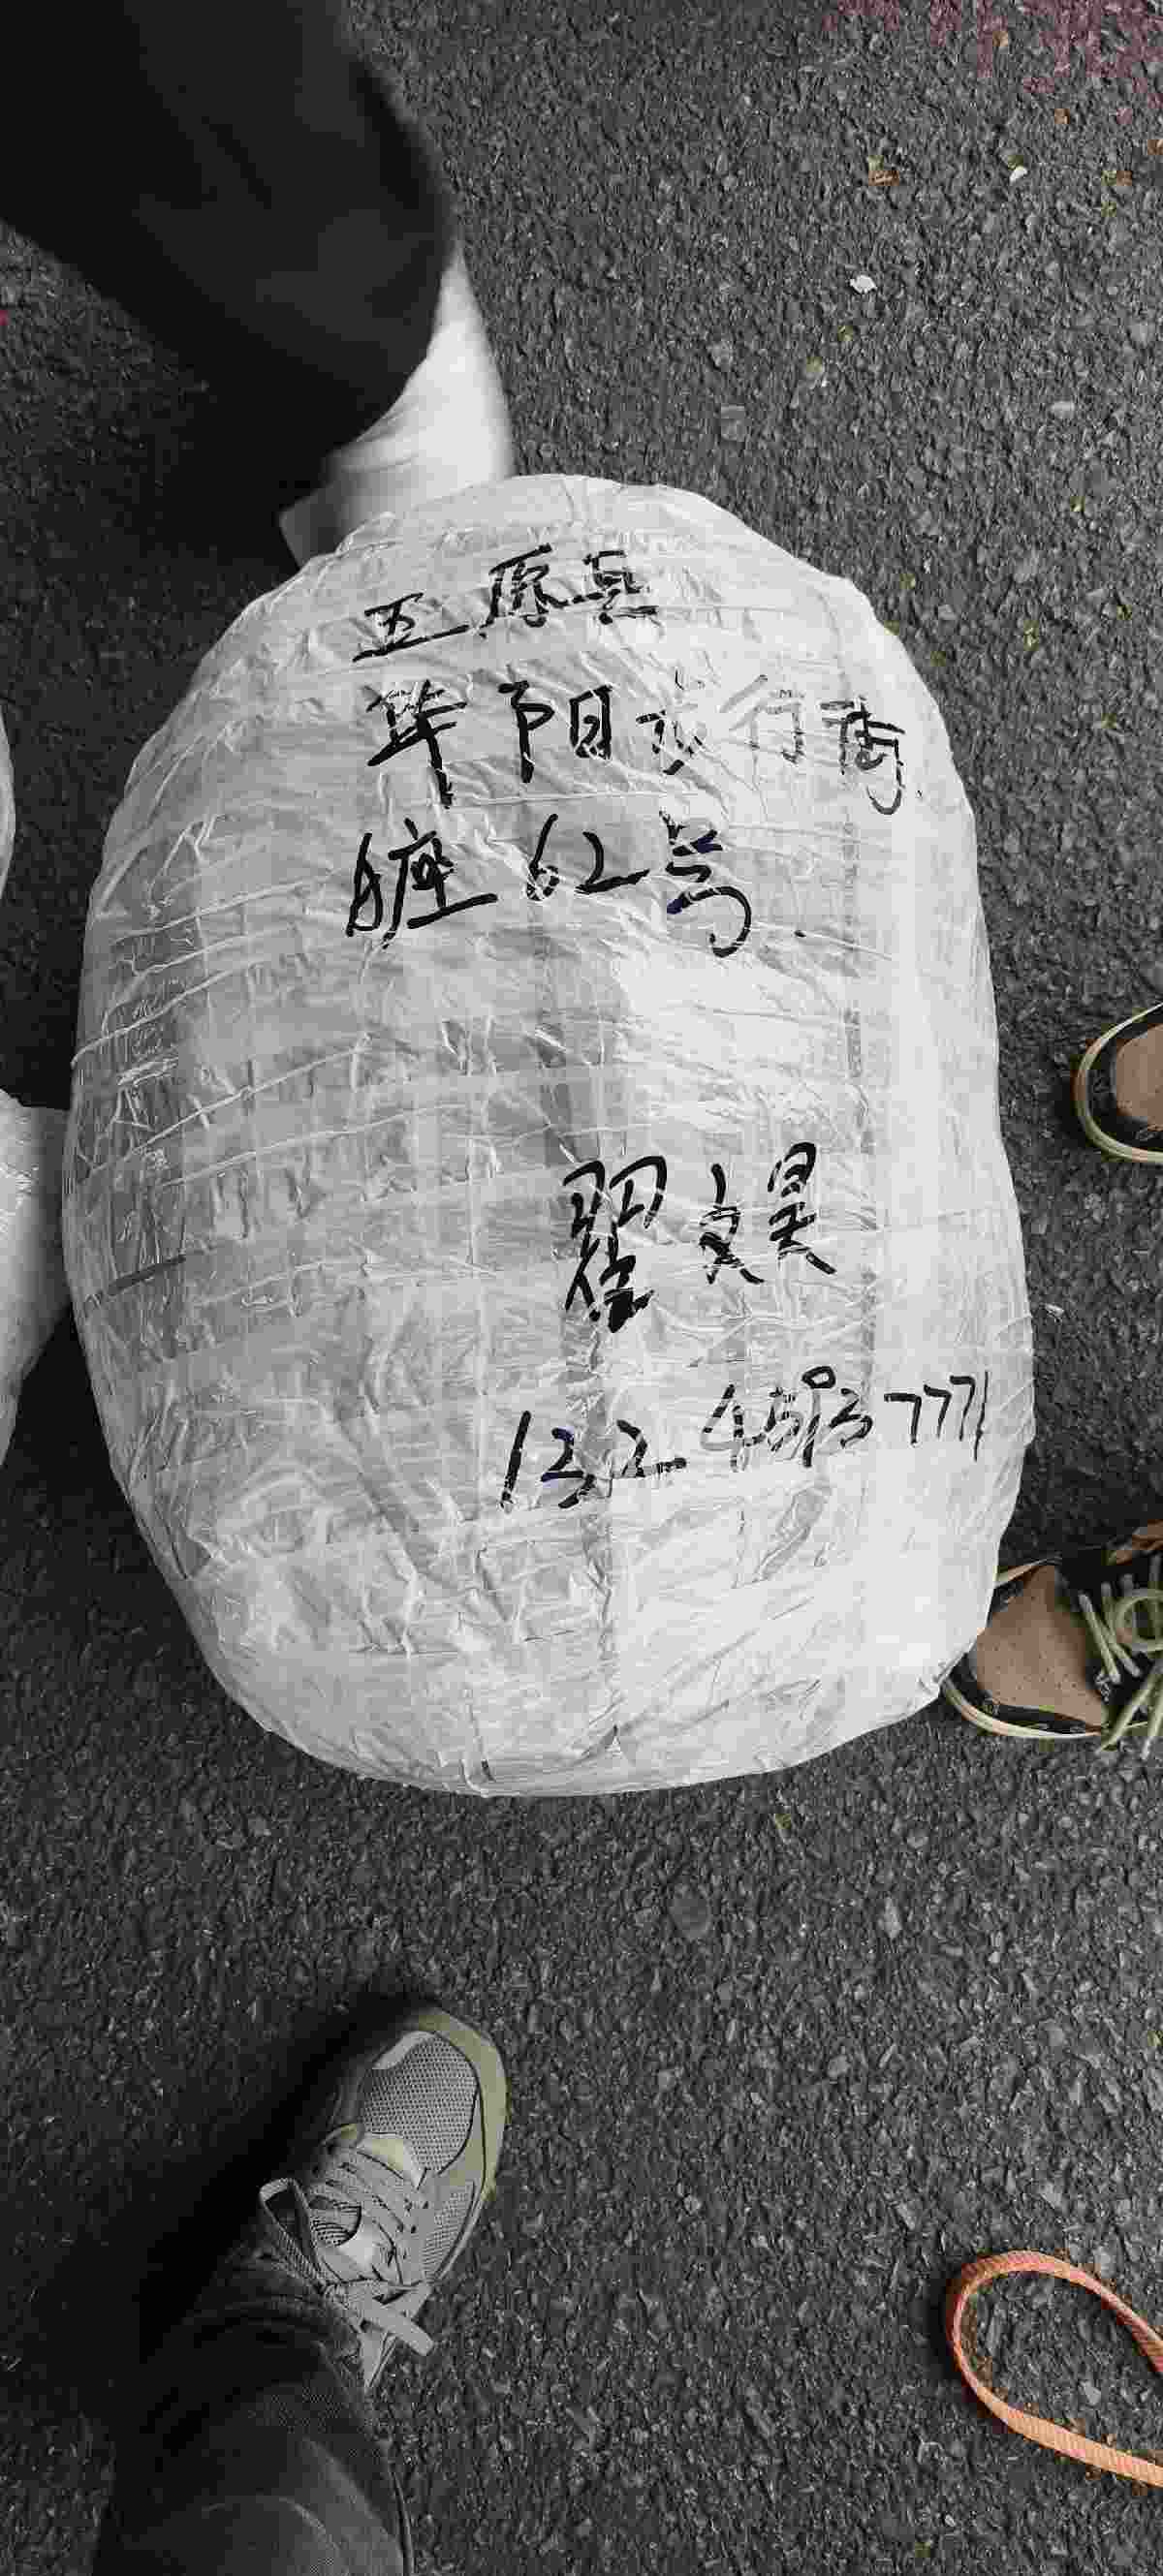 五原县
华阳步行街
A座62号
翟文昊
132 4593 7771